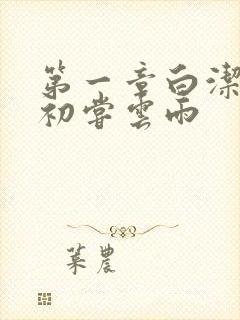 第一章白潔
初嘗雲雨
葉農